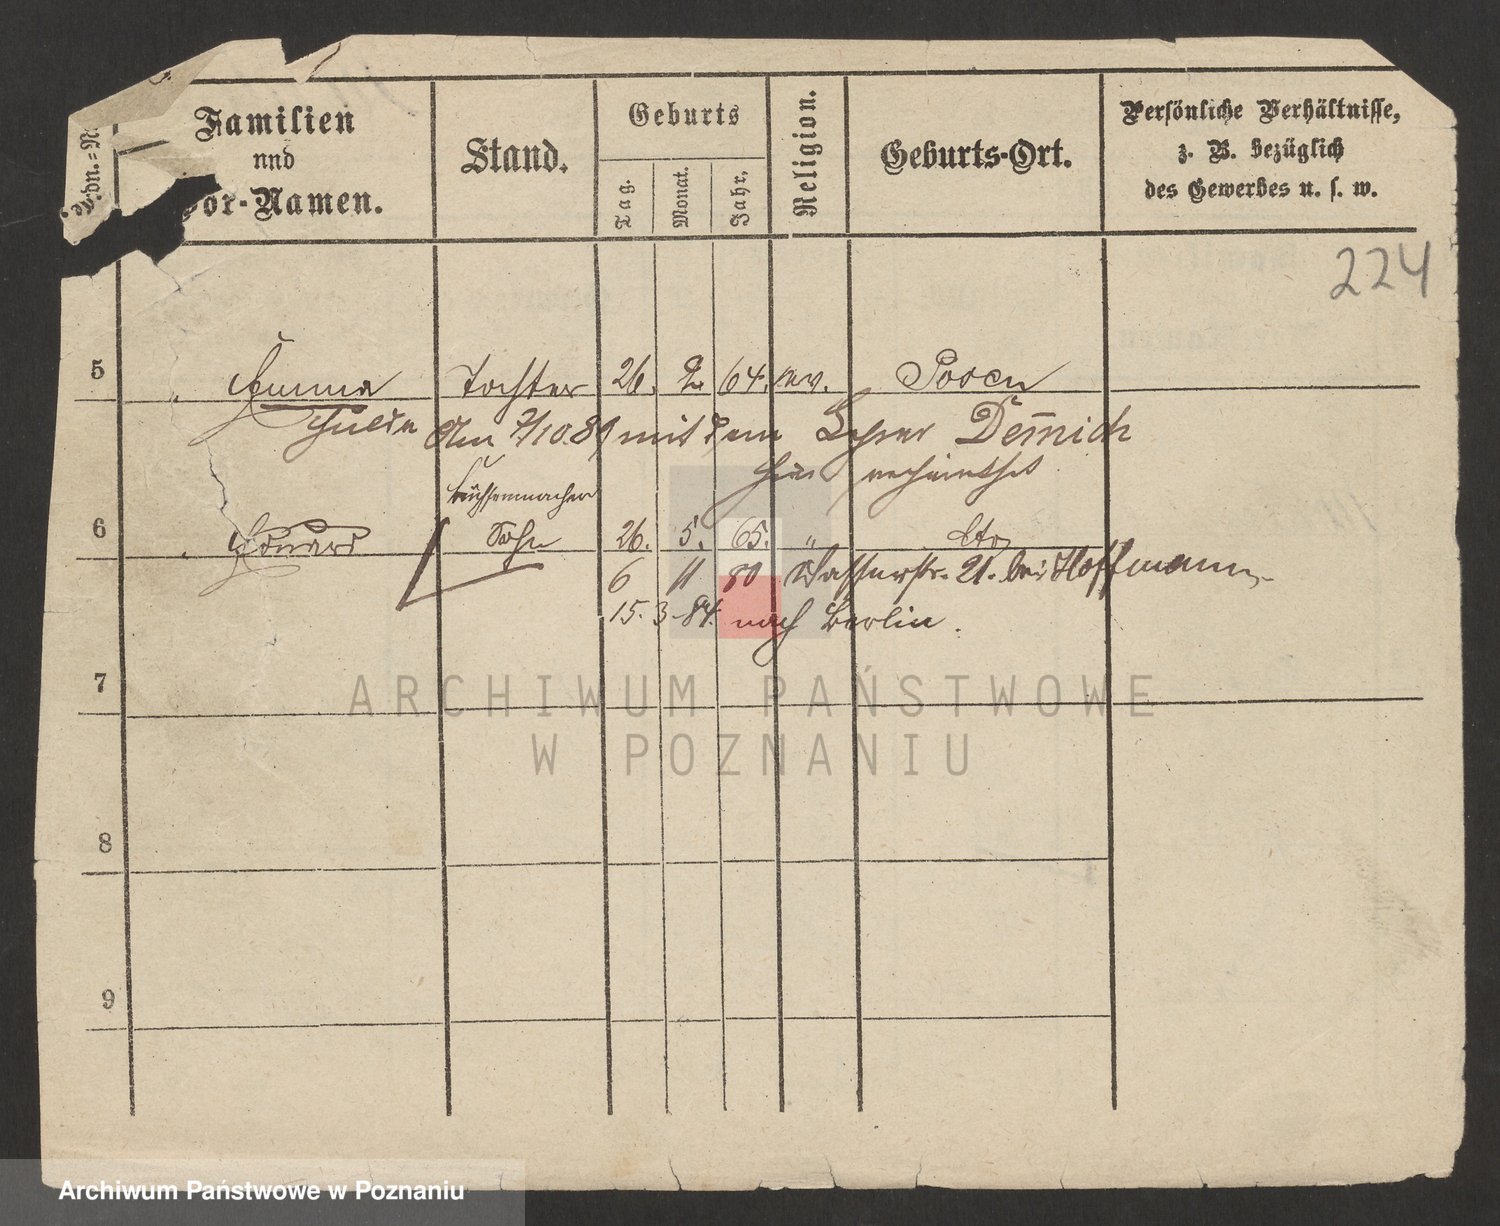 Familien
und
Vor-Namen.
Stand.
Geburts
Tag.
Monat.
Jahr.
Religion.
Geburts-Ort.
Persönliche Verhältnisse,
z. B. bezüglich
des Gewerbes u. s. w.
224
5 Emma Tochter 26. 2. 64. ev. Posen
Am 7/10.89 mit dem Lehrer Demnich
hier verheirathet
Büchsenmacher
6 Eduard Sohn 26. 5. 65. " dto
6 11 80 Wasserstr. 21. bei Hoffmann
15. 3. 84. nach Berlin.
7
ARCHIWUM PAŃSTWOWE
W POZNANIU
8
9
Archiwum Państwowe w Poznaniu